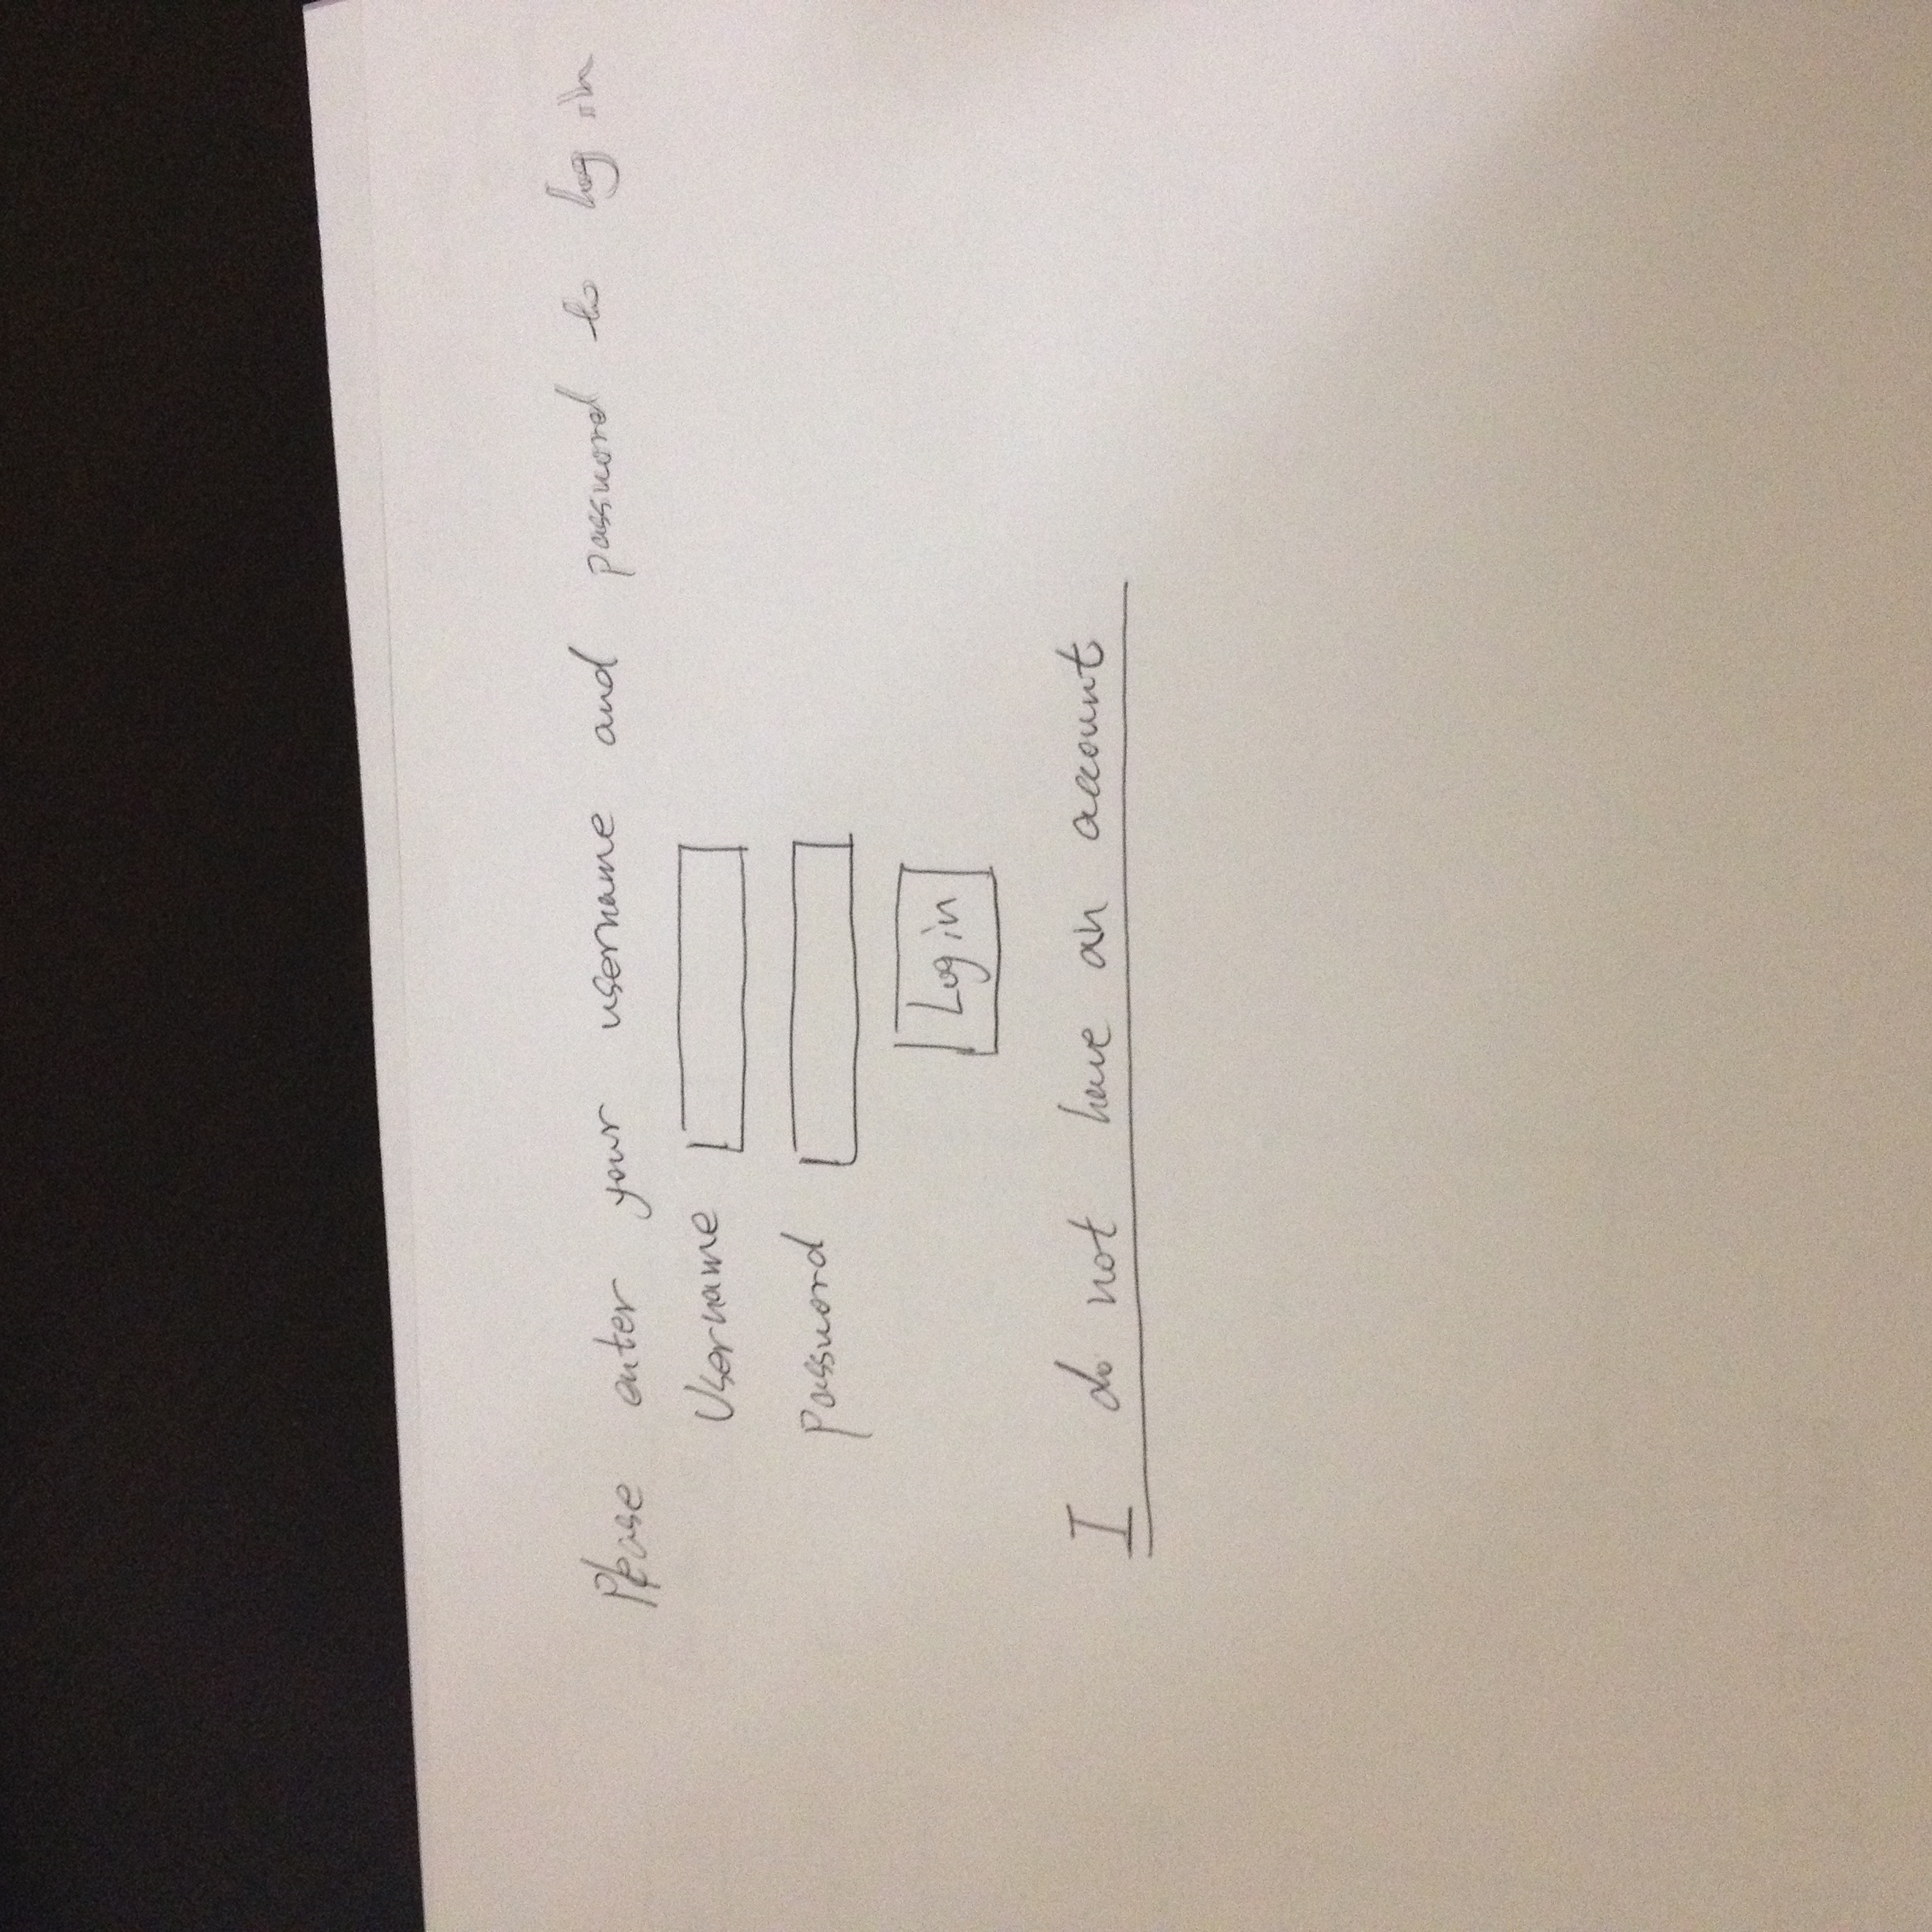 Please enter your username and password to log in
Username
password
Log in
I do not have an account